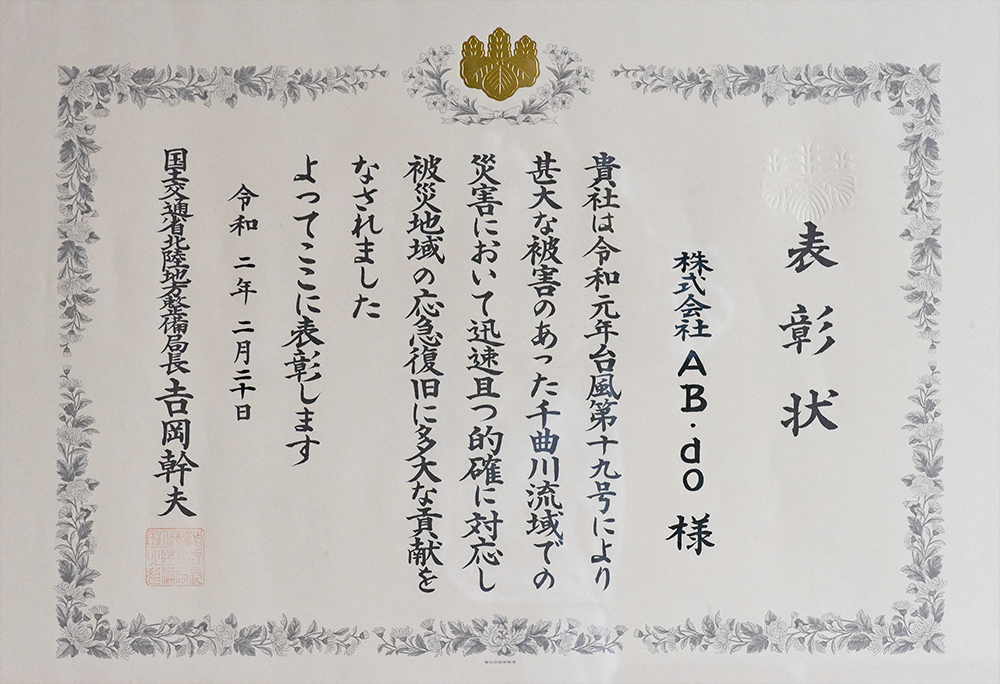 表彰状
株式会社 AB・do 様
貴社は令和元年台風第十九号により
甚大な被害のあった千曲川流域での
災害において迅速且つ的確に対応し
被災地域の応急復旧に多大な貢献を
なされました
よってここに表彰します
令和 二年 二月二十日
国土交通省北陸地方整備局長 吉岡幹夫